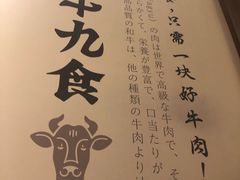 ，只需一块好牛肉！
の肉は世界で高級な牛肉で、そ
らかくて、栄養が豊富で、口当たりが
高品質の和牛は、他の種類の牛肉より
九食